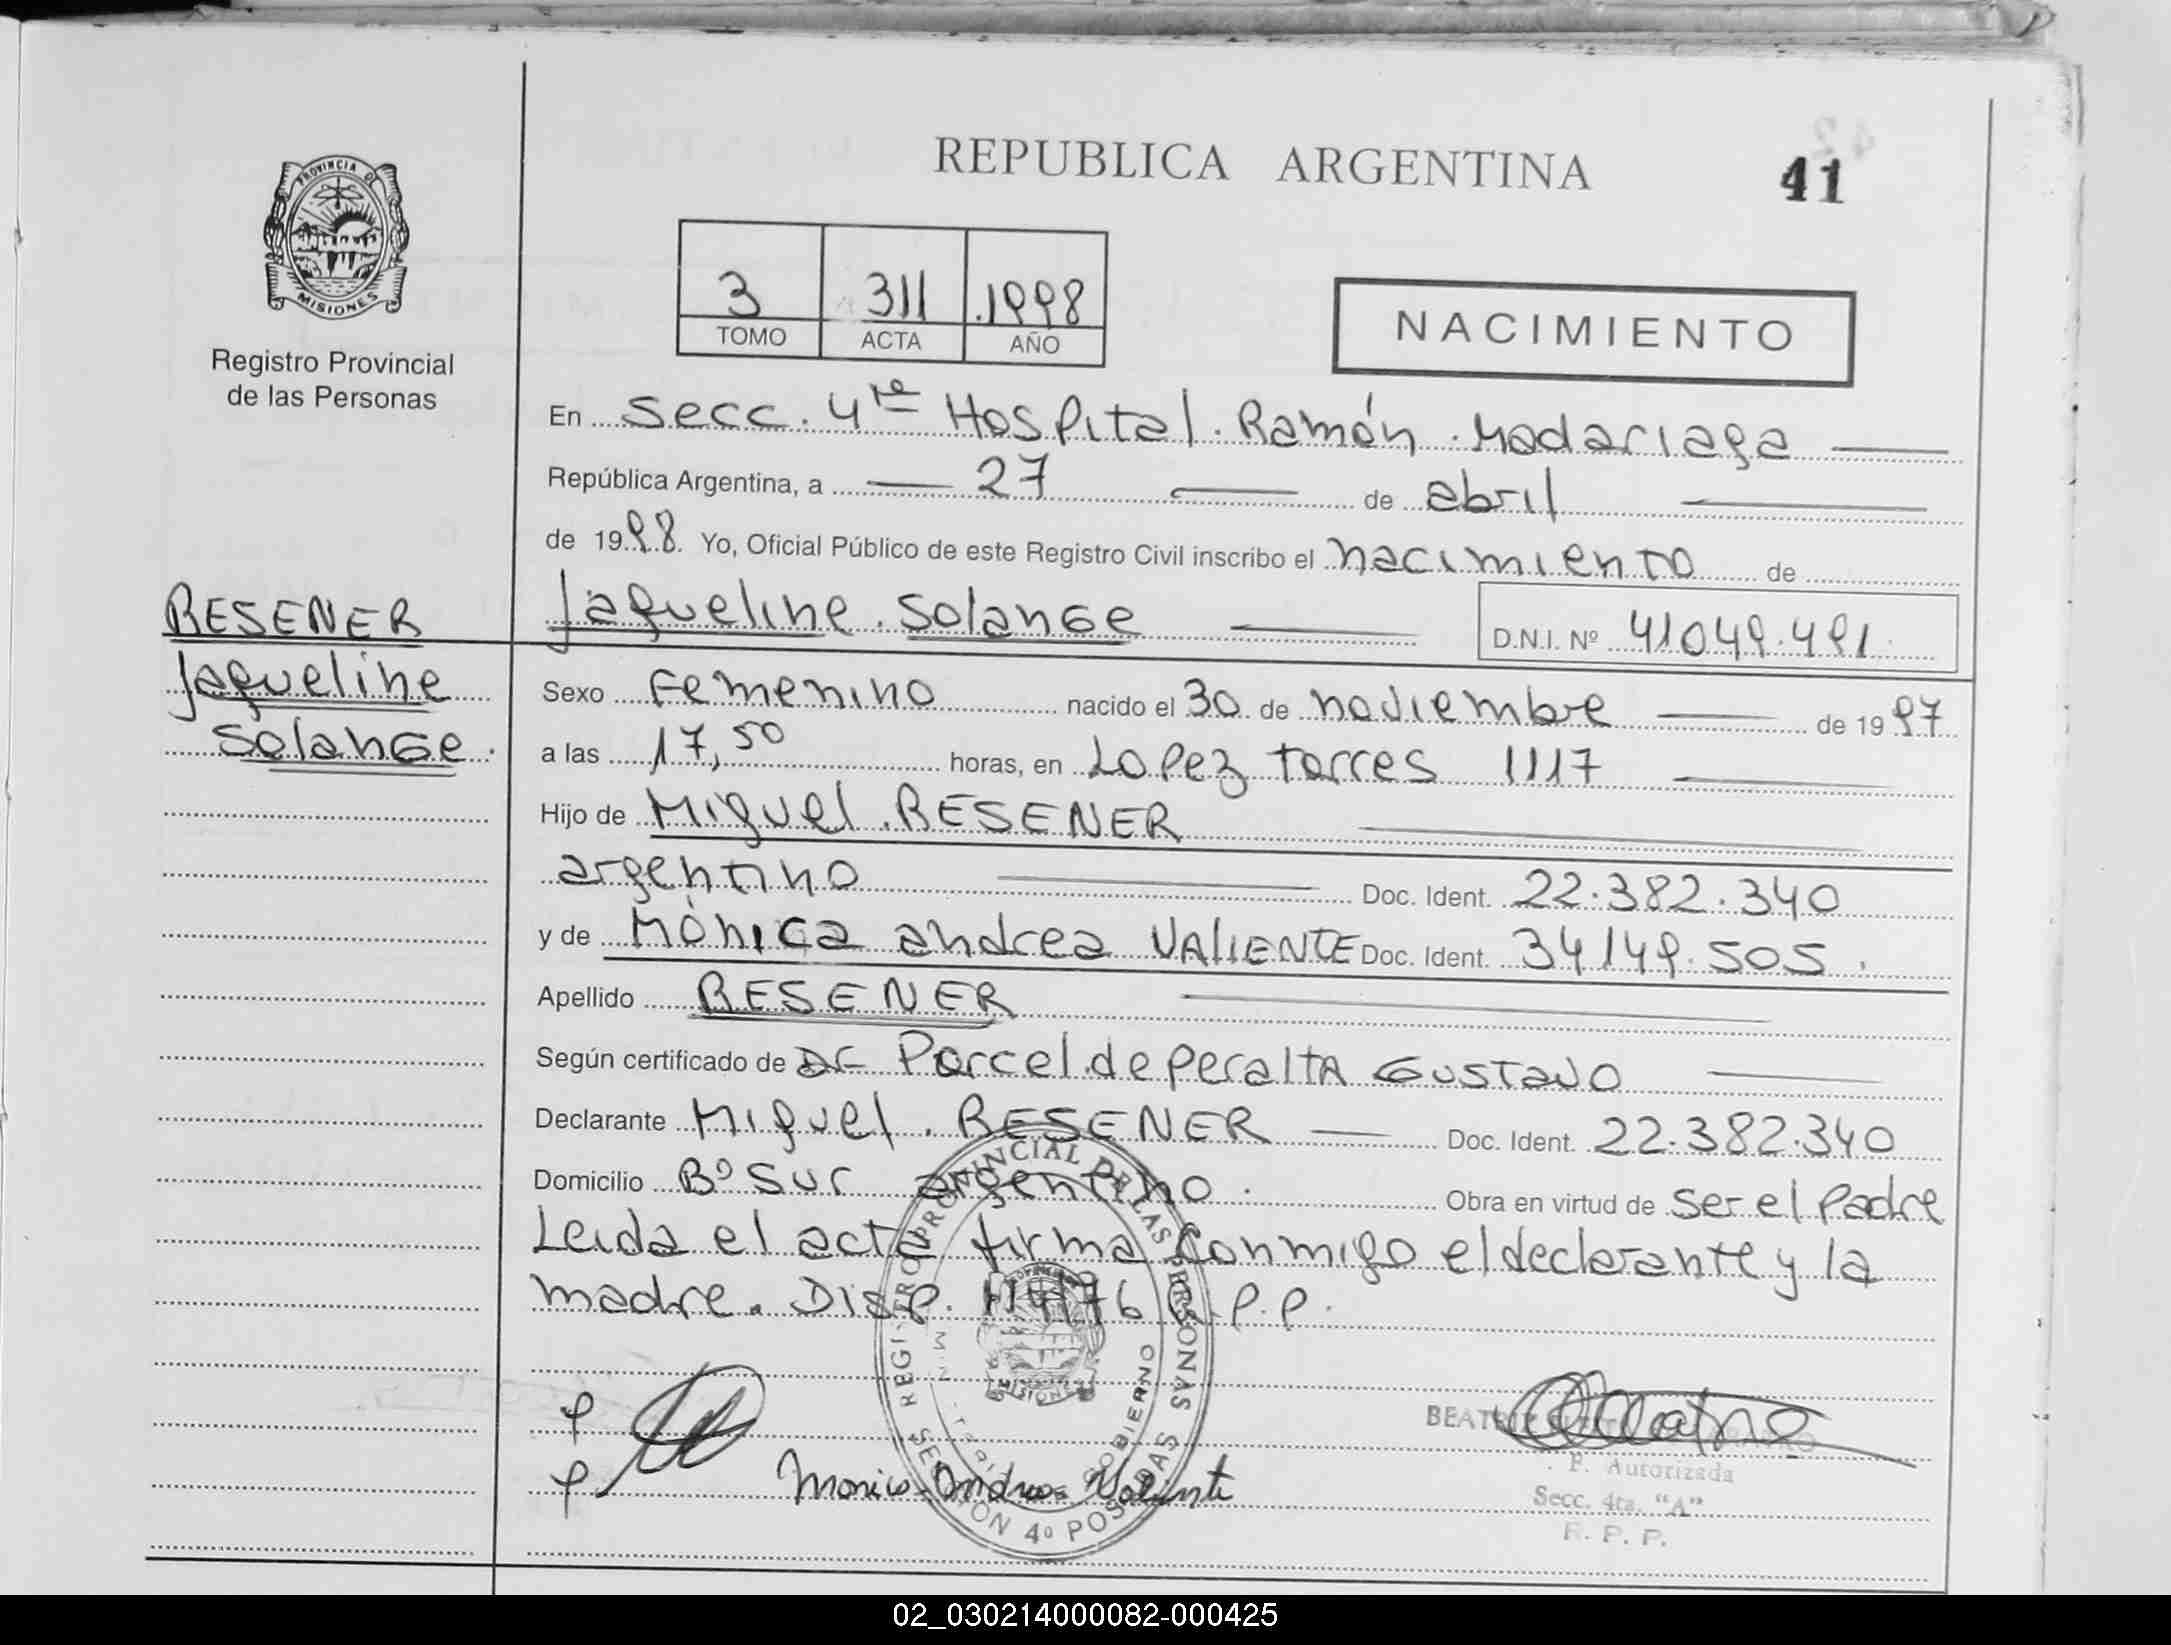 REPUBLICA ARGENTINA
41
PROVINCIA DE
MISIONES
Registro Provincial
de las Personas
3 311 1998
TOMO ACTA AÑO
NACIMIENTO
En Secc. 4ta Hospital Ramón Madariaga
República Argentina, a 27 de abril
de 1998. Yo, Oficial Público de este Registro Civil inscribo el nacimiento de
Jaqueline Solange D.N.I. Nº 41049.491
BESENER
Jaqueline
Solange.
Sexo Femenino nacido el 30 de noviembre de 1997
a las 17,50 horas, en Lopez torres 1117
Hijo de Miguel BESENER
argentino Doc. Ident. 22.382.340
y de Mónica andrea VALIENTE Doc. Ident. 34149.505.
Apellido BESENER
Según certificado de Dr Porcel de Peralta GUSTAVO
Declarante Miguel BESENER Doc. Ident. 22.382.340
Domicilio Bº Sur argentino. Obra en virtud de ser el Padre
Leida el acta firma Conmigo el declarante y la
madre. Disp. 76 R.P.P.
REGISTRO PROVINCIAL DE LAS PERSONAS
GOBIERNO
MISIONES
SECCION 4º POSADAS
Monica Andrea Valiente
BEATRIZ
F. Autorizada
Secc. 4ta. "A"
R. P. P.
02_030214000082-000425